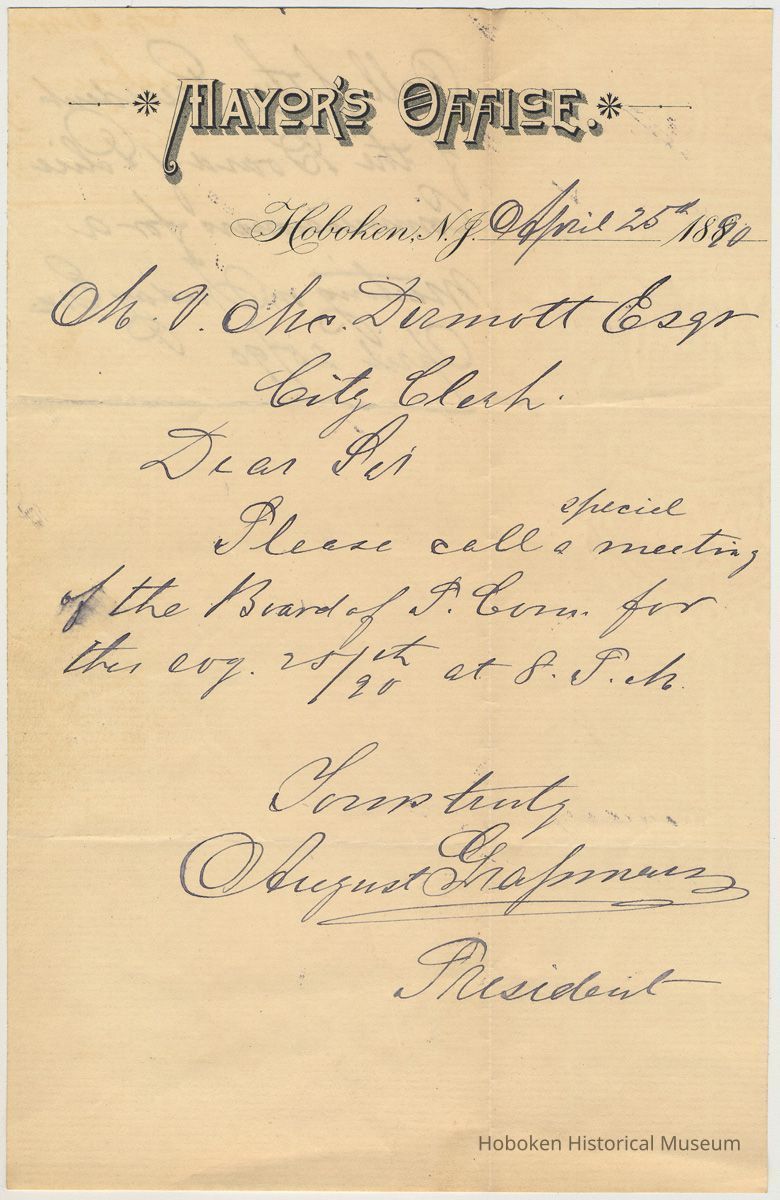 MAYOR'S OFFICE.
Hoboken, N.J. April 25th 1890
M. V. Mc. Dermott Esqr
City Clerk.
Dear Sir
special
Please call a meeting
of the Board of P. Com. for
this evg. 25/90th at 8. P. M.
Yours truly
August Grassmann
President
Hoboken Historical Museum